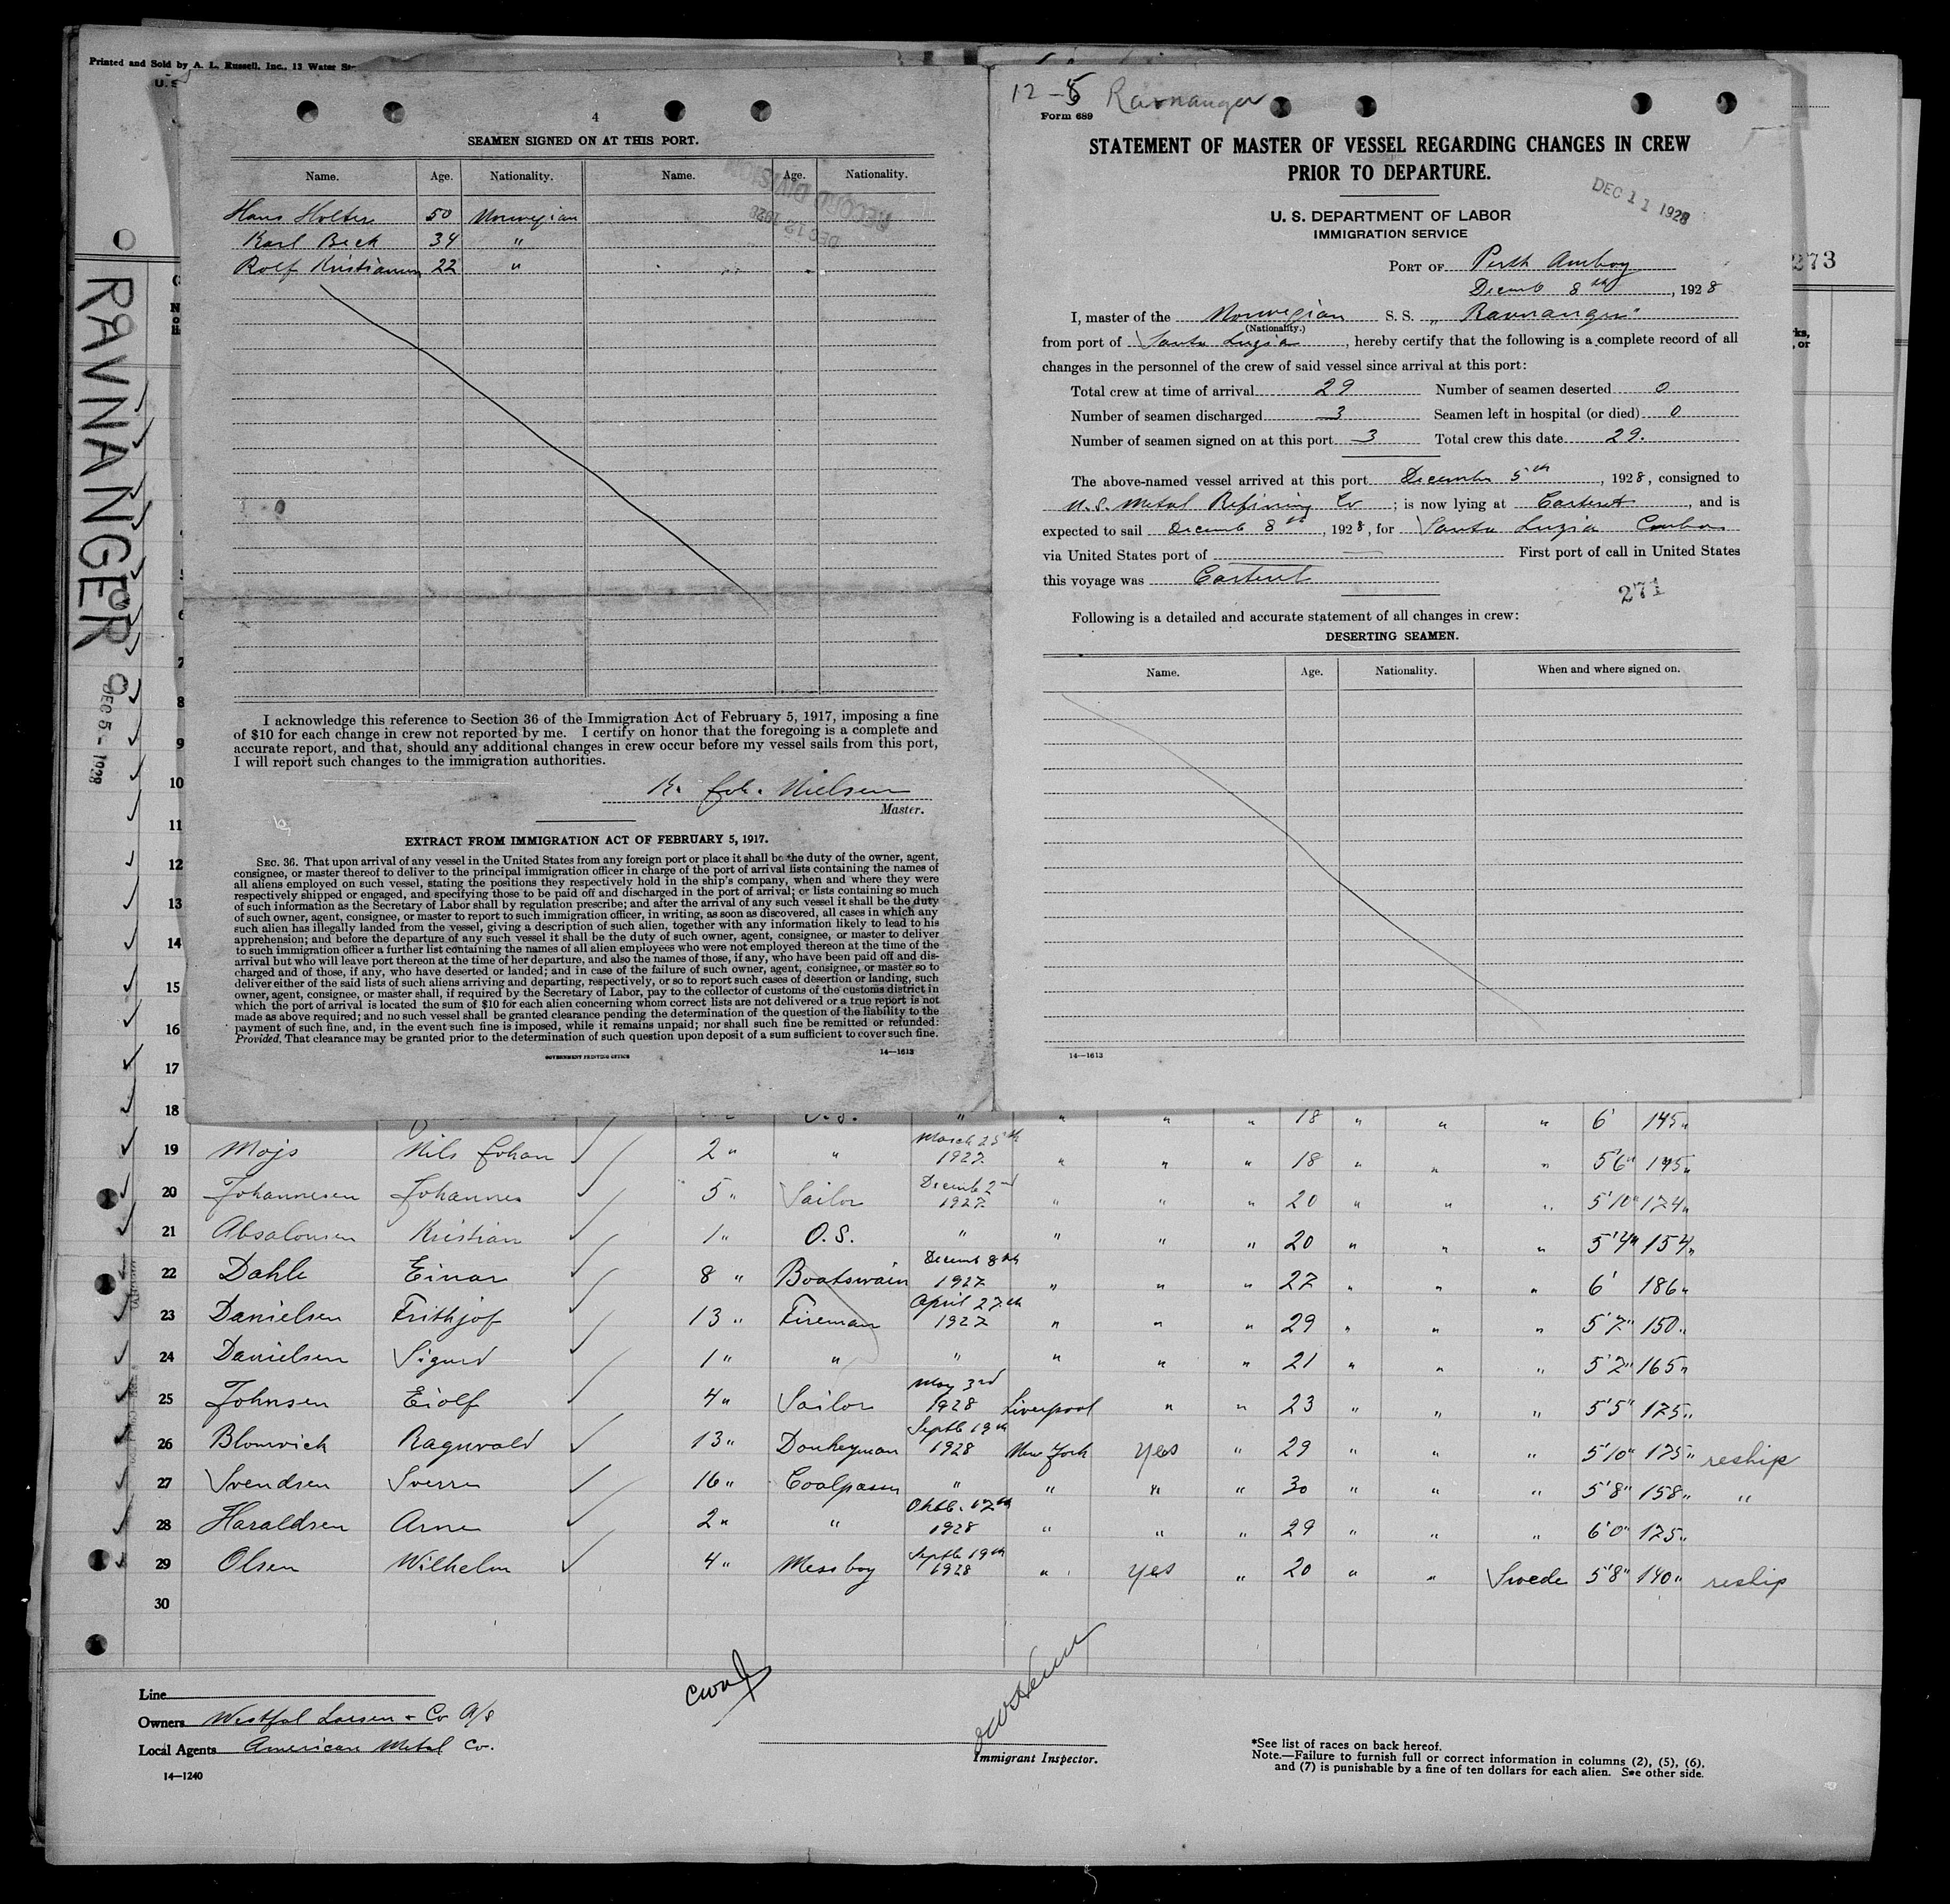 Printed and Sold by A. L. Russell, Inc., 13 Water
U. S
4
SEAMEN SIGNED ON AT THIS PORT.
Name. Age. Nationality. Name. Age. Nationality.
RECORD DIVISION
DEC 12 1928
Hans Holter 50 Norwegian
Karl Beck 34 "
Rolf Kristiansen 22 "
I acknowledge this reference to Section 36 of the Immigration Act of February 5, 1917, imposing a fine
of $10 for each change in crew not reported by me. I certify on honor that the foregoing is a complete and
accurate report, and that, should any additional changes in crew occur before my vessel sails from this port,
I will report such changes to the immigration authorities.
K. Joh. Nielsen
Master.
EXTRACT FROM IMMIGRATION ACT OF FEBRUARY 5, 1917.
SEC. 36. That upon arrival of any vessel in the United States from any foreign port or place it shall be the duty of the owner, agent,
consignee, or master thereof to deliver to the principal immigration officer in charge of the port of arrival lists containing the names of
all aliens employed on such vessel, stating the positions they respectively hold in the ship's company, when and where they were
respectively shipped or engaged, and specifying those to be paid off and discharged in the port of arrival; or lists containing so much
of such information as the Secretary of Labor shall by regulation prescribe; and after the arrival of any such vessel it shall be the duty
of such owner, agent, consignee, or master to report to such immigration officer, in writing, as soon as discovered, all cases in which any
such alien has illegally landed from the vessel, giving a description of such alien, together with any information likely to lead to his
apprehension; and before the departure of any such vessel it shall be the duty of such owner, agent, consignee, or master to deliver
to such immigration officer a further list containing the names of all alien employees who were not employed thereon at the time of the
arrival but who will leave port thereon at the time of her departure, and also the names of those, if any, who have been paid off and dis-
charged and of those, if any, who have deserted or landed; and in case of the failure of such owner, agent, consignee, or master so to
deliver either of the said lists of such aliens arriving and departing, respectively, or so to report such cases of desertion or landing, such
owner, agent, consignee, or master shall, if required by the Secretary of Labor, pay to the collector of customs of the customs district in
which the port of arrival is located the sum of $10 for each alien concerning whom correct lists are not delivered or a true report is not
made as above required; and no such vessel shall be granted clearance pending the determination of the question of the liability to the
payment of such fine, and, in the event such fine is imposed, while it remains unpaid; nor shall such fine be remitted or refunded:
Provided, That clearance may be granted prior to the determination of such question upon deposit of a sum sufficient to cover such fine.
GOVERNMENT PRINTING OFFICE 14—1613
12-5 Ravnanger
Form 689
STATEMENT OF MASTER OF VESSEL REGARDING CHANGES IN CREW
PRIOR TO DEPARTURE.
DEC 11 1928
U. S. DEPARTMENT OF LABOR
IMMIGRATION SERVICE
PORT OF Perth Amboy
Decemb 8th, 1928
I, master of the Norwegian S. S. "Ravnanger"
(Nationality.)
from port of Santa Luzia, hereby certify that the following is a complete record of all
changes in the personnel of the crew of said vessel since arrival at this port:
Total crew at time of arrival 29 Number of seamen deserted 0
Number of seamen discharged 3 Seamen left in hospital (or died) 0
Number of seamen signed on at this port 3 Total crew this date 29.
The above-named vessel arrived at this port December 5th, 1928, consigned to
U.S. Metal Refining Co; is now lying at Carteret, and is
expected to sail Decemb 8th, 1928, for Santa Luzia Cuba
via United States port of — First port of call in United States
this voyage was Carteret
271
Following is a detailed and accurate statement of all changes in crew:
DESERTING SEAMEN.
Name. Age. Nationality. When and where signed on.
14—1613
273
ks,
, or
RAVNANGER
DEC 5 - 1928
6
7
8
9
10
11
12
13
14
15
16
17
18 O.S. " " " " 18 " " " 6' 145 "
19 Mojs Nils Johan 2 " " March 25th 1927 " " " 18 " " " 5'6" 145 "
20 Johannesen Johannes 5 " Sailor Decemb 2nd 1927 " " " 20 " " " 5'10" 174 "
21 Absalonsen Kristian 1 " O.S. " " " " 20 " " " 5'4" 154 "
22 Dahle Einar 8 " Boatswain Decemb 8th 1927 " " " 27 " " " 6' 186 "
23 Danielsen Frithjof 13 " Fireman April 27th 1927 " " " 29 " " " 5'7" 150 "
24 Danielsen Sigurd 1 " " " " " " 21 " " " 5'7" 165 "
25 Johnsen Eiolf 4 " Sailor May 3rd 1928 Liverpool " " 23 " " " 5'5" 175 "
26 Blomvick Ragnvald 13 " Donkeyman Septb 19th 1928 New York Yes " 29 " " " 5'10" 175 " reship
27 Svendsen Sverre 16 " Coalpasser " " " " 30 " " " 5'8" 158 " "
28 Haraldsen Arne 2 " " Oktb. 17th 1928 " " " 29 " " " 6'0" 175 "
29 Olsen Wilhelm 4 " Messboy Septb 19th 1928 " Yes " 20 " " Swede 5'8" 140 " reship
30
Line
Owners Westfal Larsen & Co A/S
Local Agents American Metal Co.
14—1240
Immigrant Inspector.
*See list of races on back hereof.
Note.—Failure to furnish full or correct information in columns (2), (5), (6),
and (7) is punishable by a fine of ten dollars for each alien. See other side.